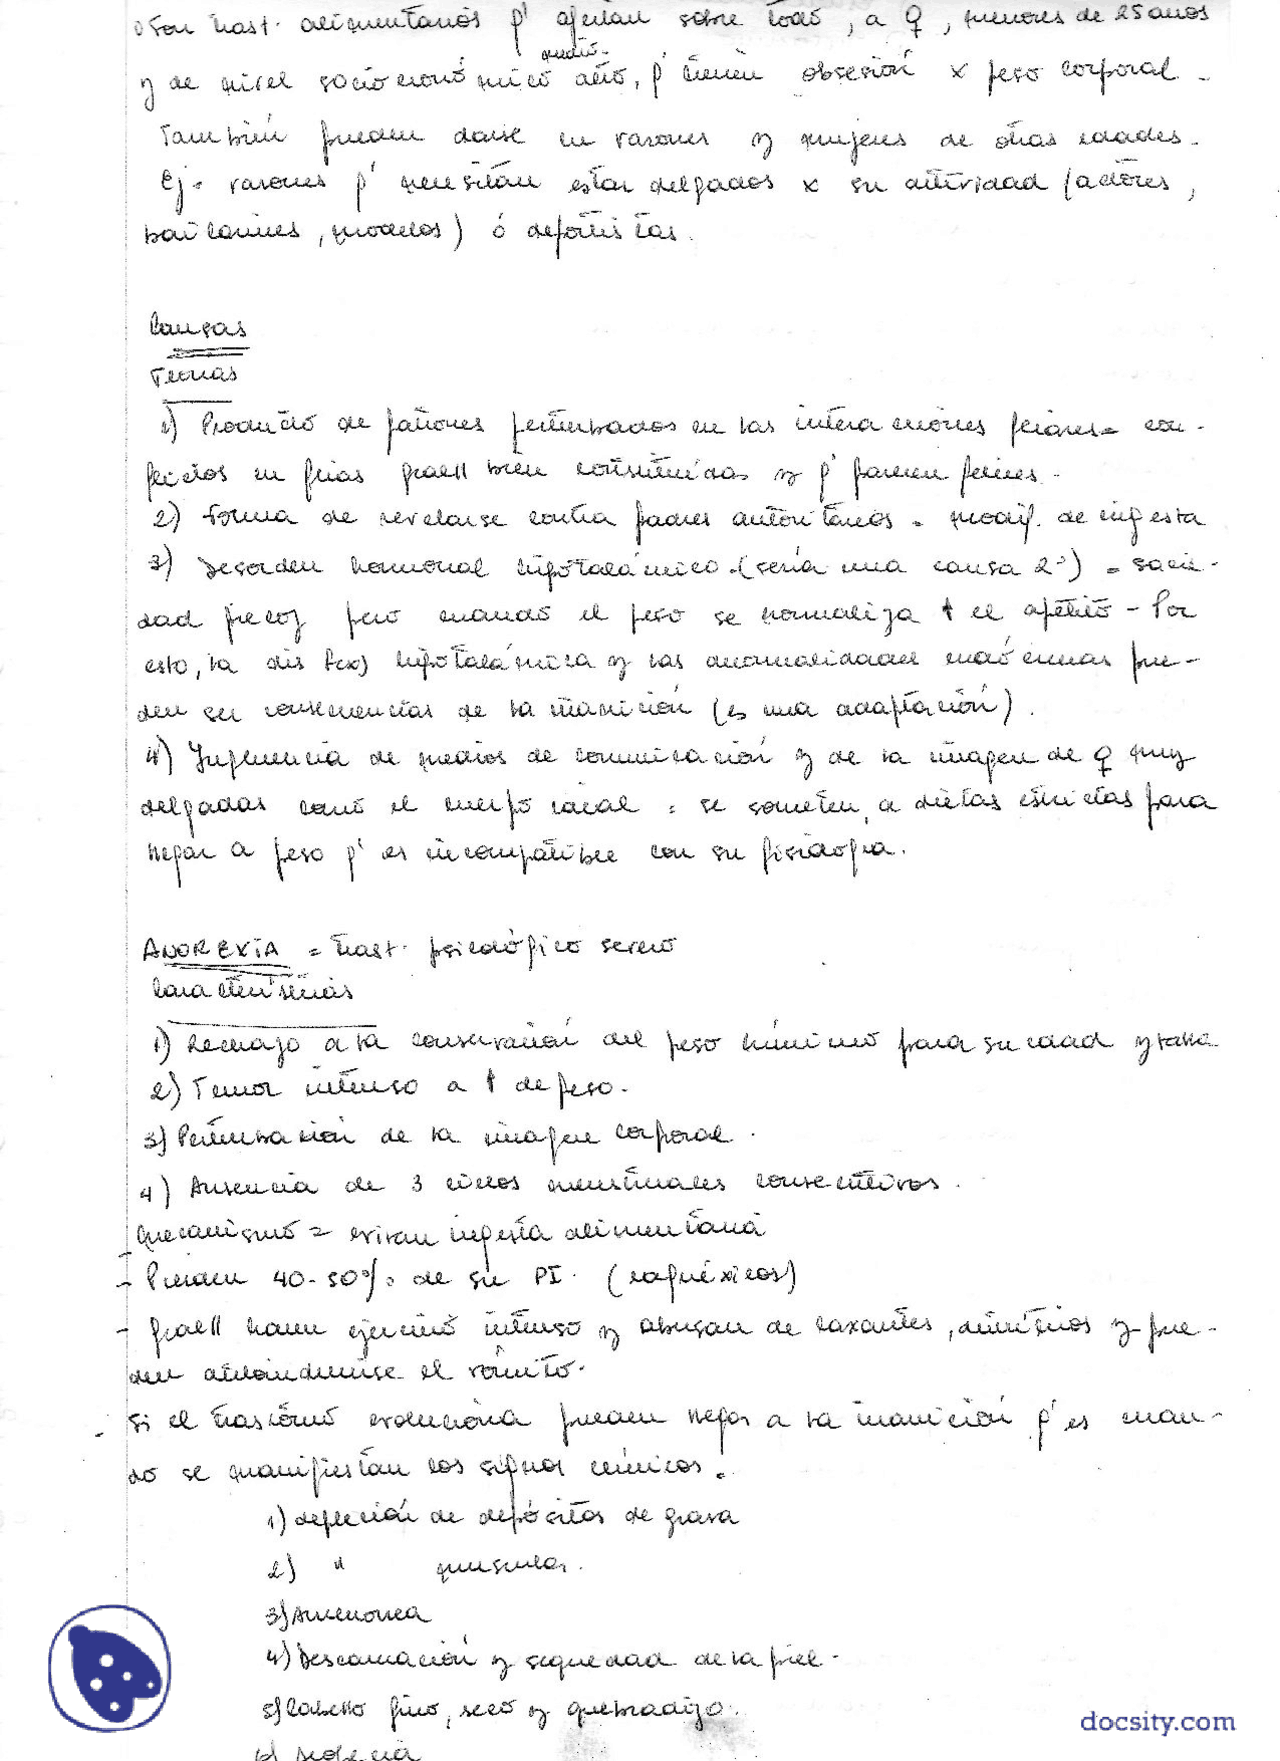 Son trast. alimentarios q' afectan sobre todo, a ♀, menores de 25 años
medio-
y de nivel socioeconómico alto, q' tienen obsesión x peso corporal.
También pueden darse en varones y mujeres de otras edades.
Ej= varones q' necesitan estar delgados x su actividad (actores,
bailarines, modelos) ó deportistas.
Causas
Teorías
1) Producto de patrones perturbados en las interacciones = con-
flictos en bien constituidas y q' parecen felices.
2) Forma de revelarse contra padres autoritarios = modif. de ingesta
3) Desorden hormonal hipotalámico (sería una causa 2º) = sacie-
dad precoz pero cuando el peso se normaliza ↑ el apetito - Por
esto, la hipotalámica y las anormalidades endócrinas pue-
den ser consecuencias de la inanición (es una adaptación).
4) Influencia de medios de comunicación y de la imagen de ♀ muy
delgadas como el cuerpo ideal = se someten a dietas estrictas para
llegar a peso q' es incompatible con su fisiología.
ANOREXIA = trast. psicológico severo
Características
1) Rechazo a la conservación del peso mínimo para su edad y talla
2) Temor intenso a ↑ de peso.
3) Perturbación de la imagen corporal.
4) Ausencia de 3 ciclos menstruales consecutivos.
Mecanismo = evitan ingesta alimentaria
- Pierden 40-50% de su PI. (caquéxicos)
- gralll hacen ejercicio intenso y abusan de laxantes, diuréticos y pue-
den autoinducirse el vómito.
- Si el trastorno evoluciona pueden llegar a la inanición q' es cuan-
do se manifiestan los signos clínicos =
1) depleción de depósitos de grasa
2) " muscular.
3) Amenorrea
4) Descamación y sequedad de la piel.
5) Cabello fino, seco y quebradizo.
docsity.com